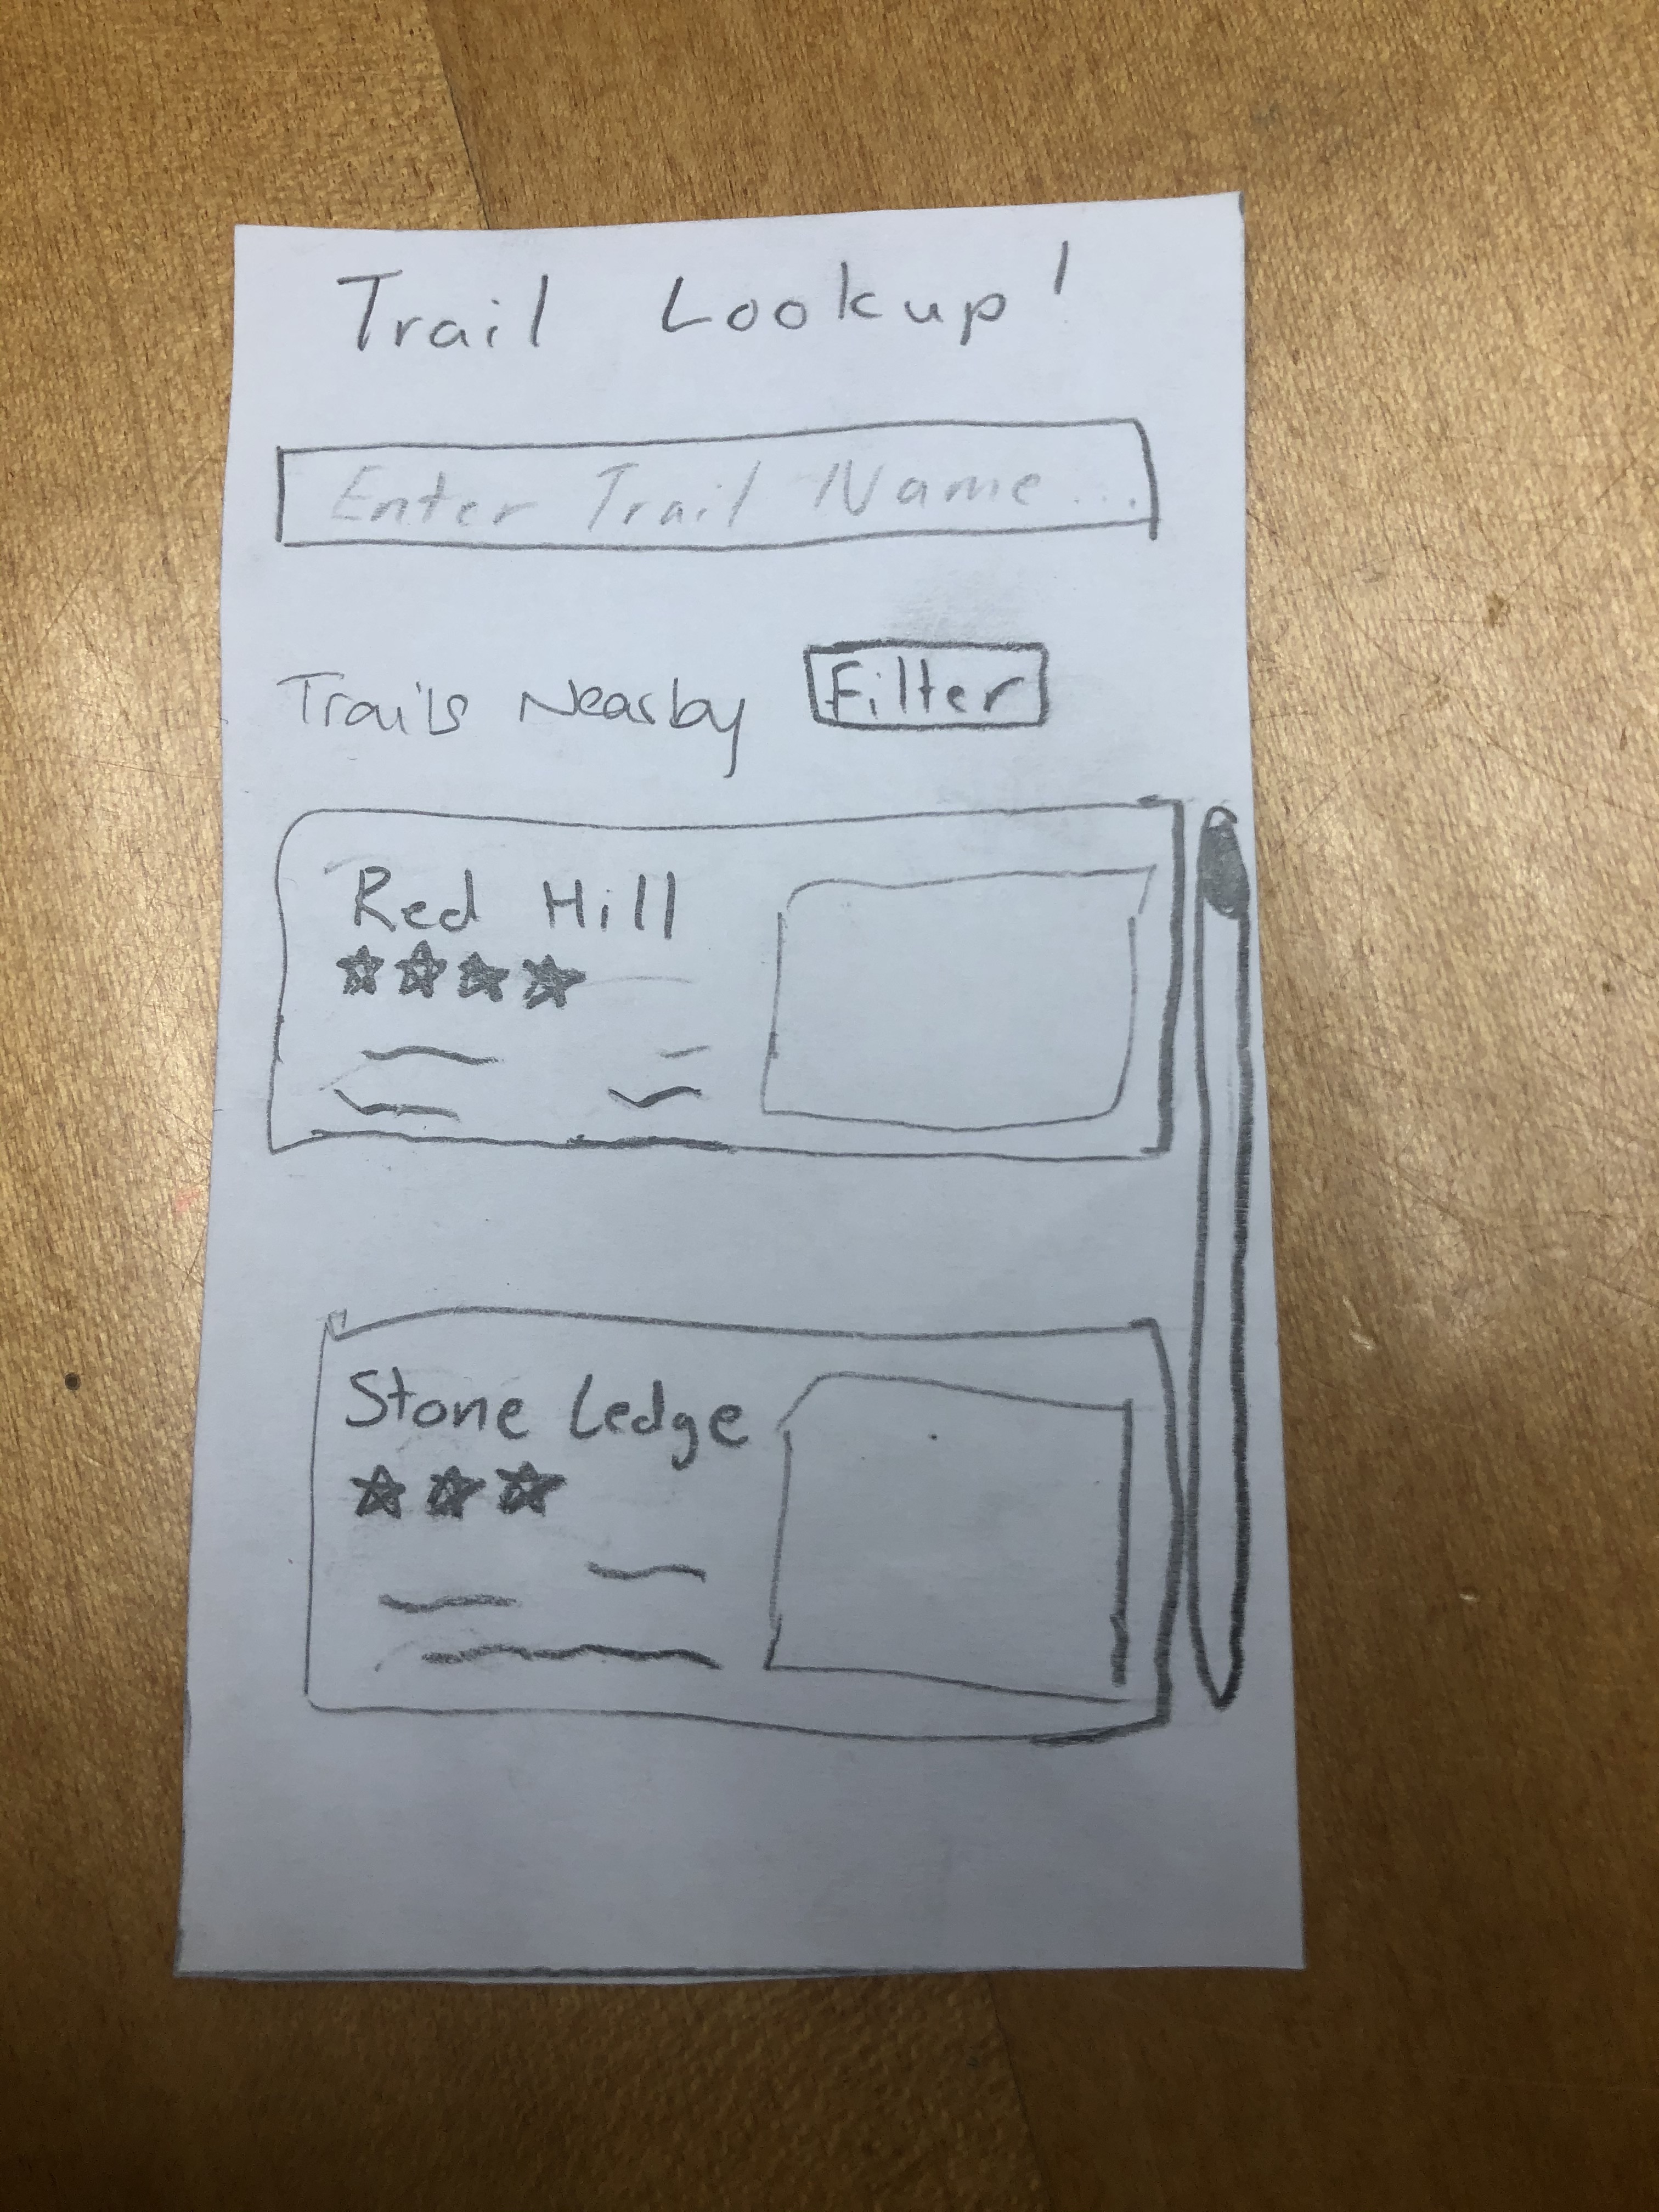 Trail Lookup!
Enter Trail Name...
Trails Nearby Filter
Red Hill
Stone Ledge